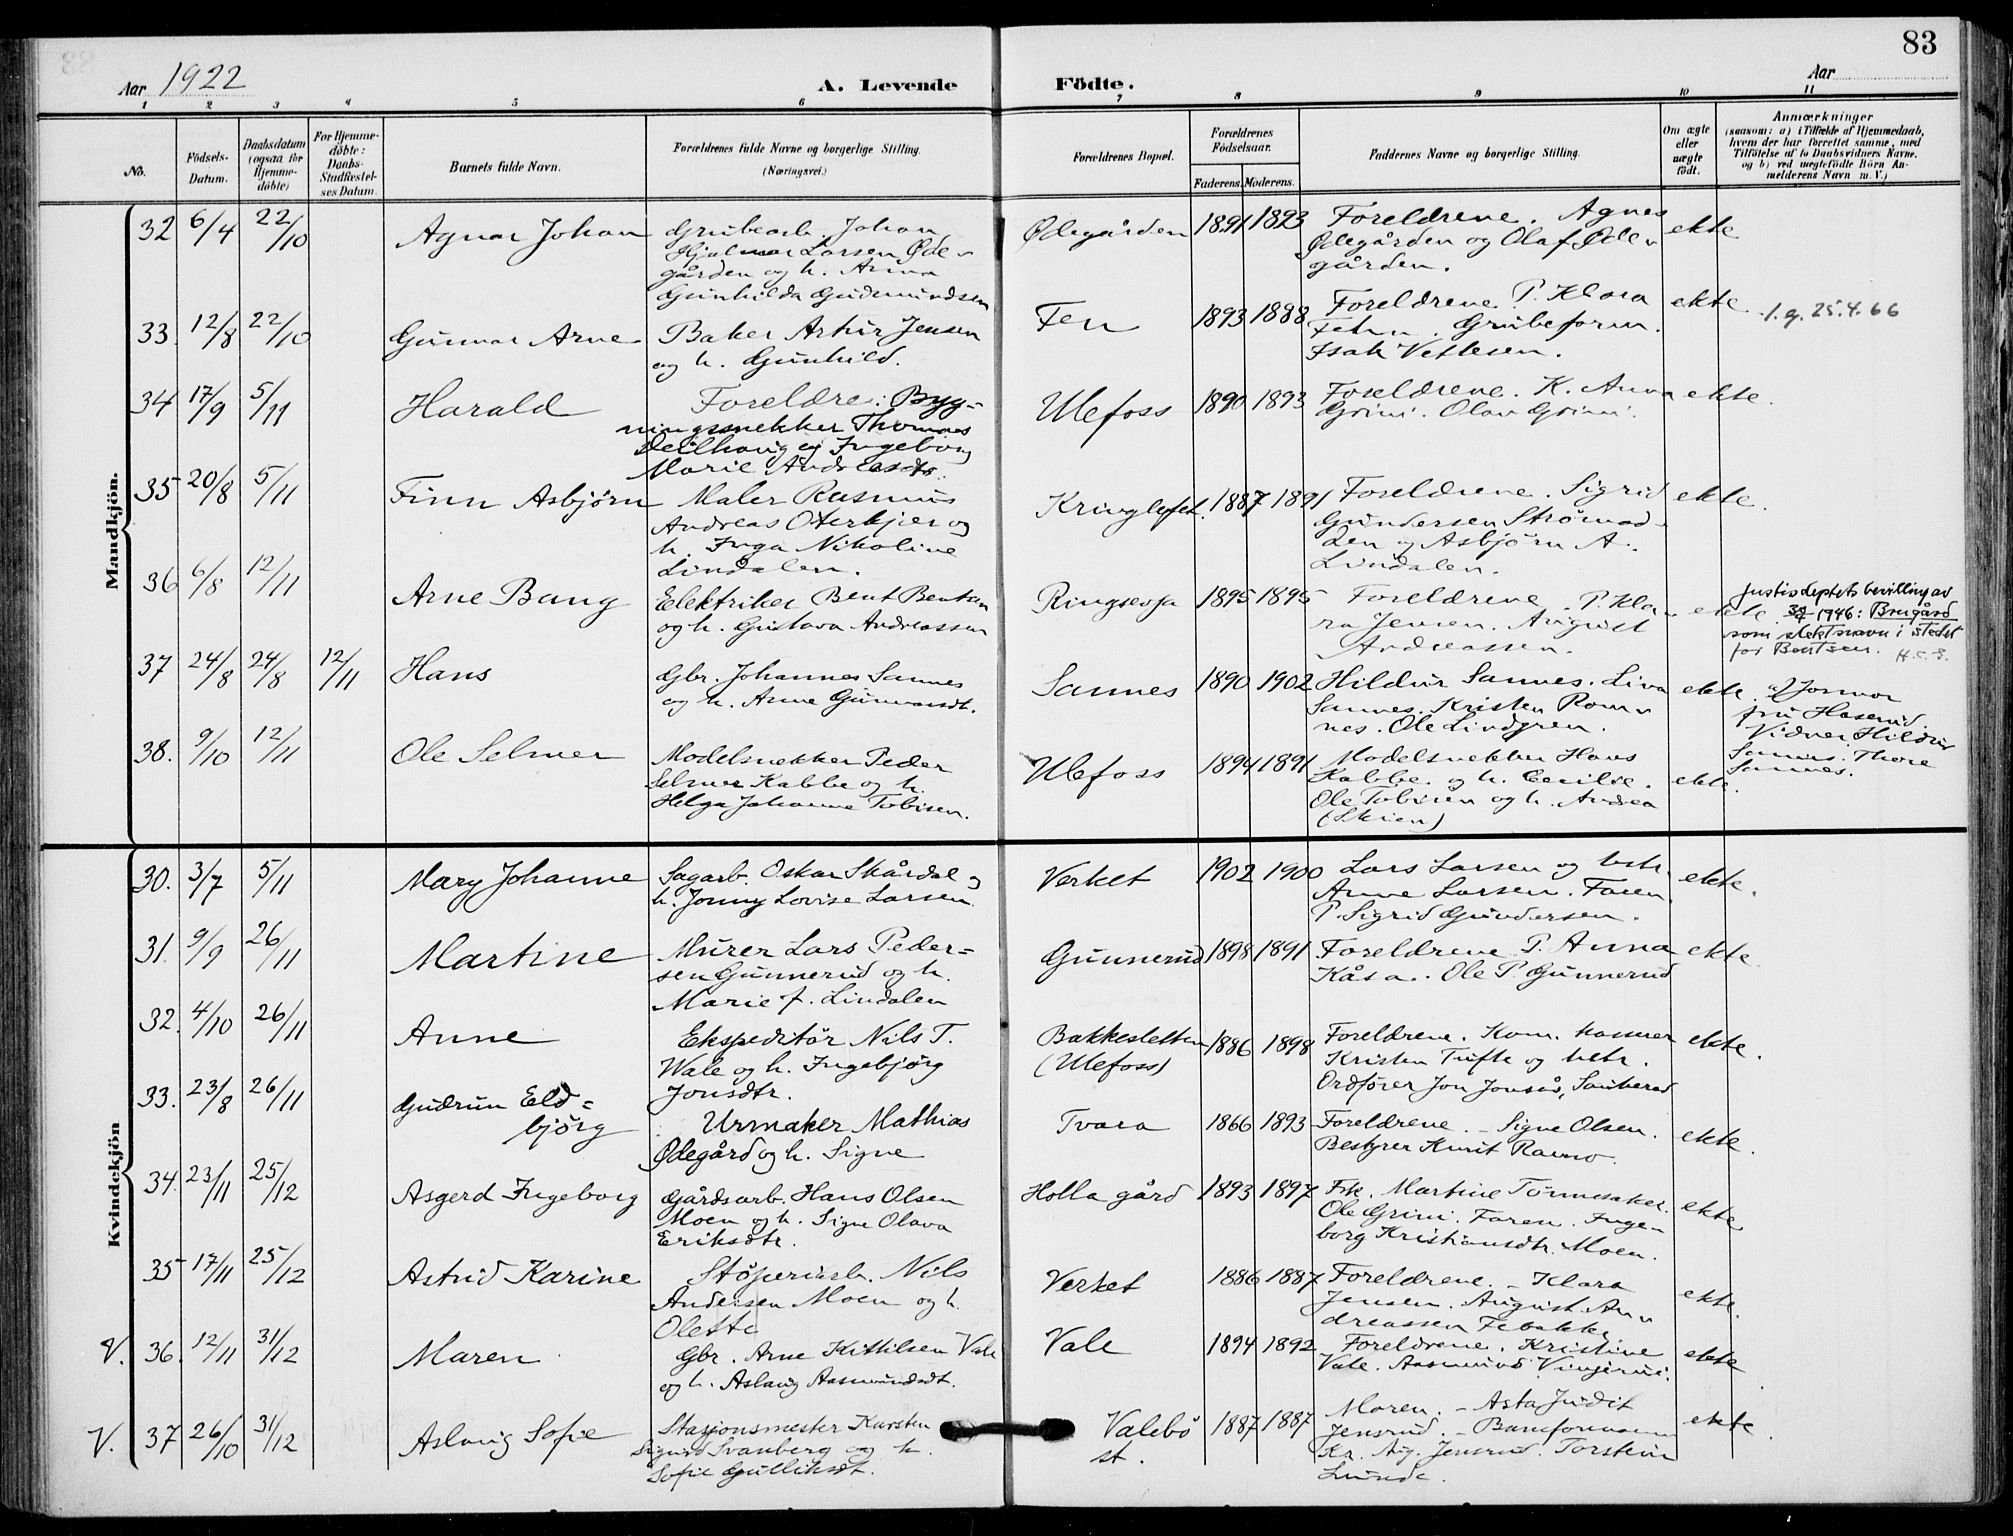 83
Aar 1922
A. Levende Födte.
Aar
1 2 3 4 5 6 7 8 9 10 11
No.
Födsels-Datum.
Daabsdatum (ogsaa for Hjemme-döbte)
For Hjemme-döbte: Daabs-Stadfæstel-ses Datum.
Barnets fulde Navn.
Forældrenes fulde Navne og borgerlige Stilling. (Næringsvei.)
Forældrenes Bopæl.
Forældrenes Födselsaar.
Faderens. Moderens.
Faddernes Navne og borgerlige Stilling.
Om ægte eller uægte födt.
Anmærkninger
(saasom: a) i Tilfælde af Hjemmedaab, hvem der har forrettet samme, med Tilföielse af to Daabsvidners Navne. og b) ved uegtefödte Börn Anmelderens Navn m. V.)
Mandkjön.
32 6/4 22/10 Agnar Johan Grubearb. Johan Ødegården 1891 1893 Foreldrene. Agnes ekte
Hjalmar Larsen Øde- Ødegården og Olaf Øde-
gården og h. Anna gården.
Gunhilda Gudmundsen
33. 12/8 22/10 Gunnar Arne Baker Artur Jensen Fen 1893 1888 Foreldrene P. Klara ekte 1.g. 25.4.66
og h. Gunhild. Fehn. Grubeform.
Isak Vetlesen.
34 17/9 5/11 Harald Foreldre: Byg- Ulefoss 1890 1893 Foreldrene. K. Anna ekte.
ningssnekker Thomas Grini. Olav Grini.
og Ingeborg
Marie Andreasdtr.
35 20/8 5/11 Finn Asbjørn Maler Rasmus 1887 1891 Foreldrene. Sigrid ekte.
Andreas Oterkjer og Gundersen
h. Inga Nikoline og Asbjørn A.
Lindalen. Lindalen.
36 6/8 12/11 Arne Bang Elektriker Bent Bentsen Ringsevja 1895 1895 Foreldrene. P. Kla- ekte
og h. Gustava Andreassen ra Jensen. August
Andreassen.
Justisdeptets bevilling av
1946: Brugård
som slektsnavn i stedet
for Bentsen. H.C.S.
37 24/8 24/8 12/11 Hans Gbr. Johannes Sannes Sannes 1890 1902 Hildur Sannes. Liva ekte a) Jormor
og h. Anne Gunvorsdt. Sannes. Kristen Rom- fru Haserud.
nes. Ole Lindgren. Vidner: Hildur
Sannes. Thore
Sannes.
38. 9/10 12/11 Ole Selmer Modelsnekker Peder Ulefoss 1894 1891 Modelsnekker Hans
Selmer Kabbe og h. Kabbe. og h. Cecilie. ekte.
Helga Johanne Tobisen. Ole Tobisen og h. Andrea
(Skien)
Kvindekjön
30. 3/7 5/11 Mary Johanne Sagarb. Oskar Skårdal og Verket 1902 1900 Lars Larsen og hstr. ekte.
h. Jonny Lovise Larsen. Anne Larsen. Faren.
P. Sigrid Gundersen.
31. 9/9 26/11 Martine Murer Lars Peder- Gunnerud 1898 1891 Foreldrene P. Anna ekte
sen Gunnerud og h. Kåsa. Ole P. Gunnerud
Marie f. Lindalen
32. 4/10 26/11 Anne Ekspeditör Nils T. Bakkesletten 1886 1898 Foreldrene. Kom. kasserer ekte.
Wale og h. Ingebjörg (Ulefoss) Kristen Tufte og hstr.
Jonsdtr. Ordförer Jon Jonsås, Sauherad
33. 23/8 26/11 Gudrun Eld- Urmaker Mathias Tvara 1866 1893 Foreldrene. - Signe Olsen. ekte.
björg Ødegård og h. Signe Bestyrer Knut Ravno.
34. 23/11 25/12 Asgerd Ingeborg Gårdsarb. Hans Olsen Holla gård 1893 1897 Frk. Martine Tønnesaker. ekte
Moen og h. Signe Olava Ole Grini. Faren. Inge-
Eriksdtr. borg Kristiansdtr. Moen.
35 17/11 25/12 Astrid Karine Støperiarb. Nils Verket 1886 1887 Foreldrene. - Klara ekte.
Andersen Moen og h. Jensen. August An-
Olette dreassen Febakke
V. 36. 12/11 31/12 Maren Gbr. Arne Kittilsen Vale Vale 1894 1892 Foreldrene. Kristine ekte
og h. Aslaug Aasmundsdt. Vale. Aasmund
V. 37 26/10 31/12 Aslaug Sofie Stasjonsmester Karsten Valebö st. 1887 1887 Moren. - Asta Judit ekte.
Sigurd Svanberg og h. Jensrud. - Banformann
Sofie Gulliksdt. Kr. Aug. Jensrud. Torstein
Lunde.